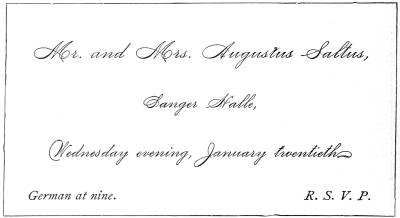 Mr. and Mrs. Augustus Saltus,
Sanger Halle,
Wednesday evening, January twentieth
German at nine. R. S. V. P.